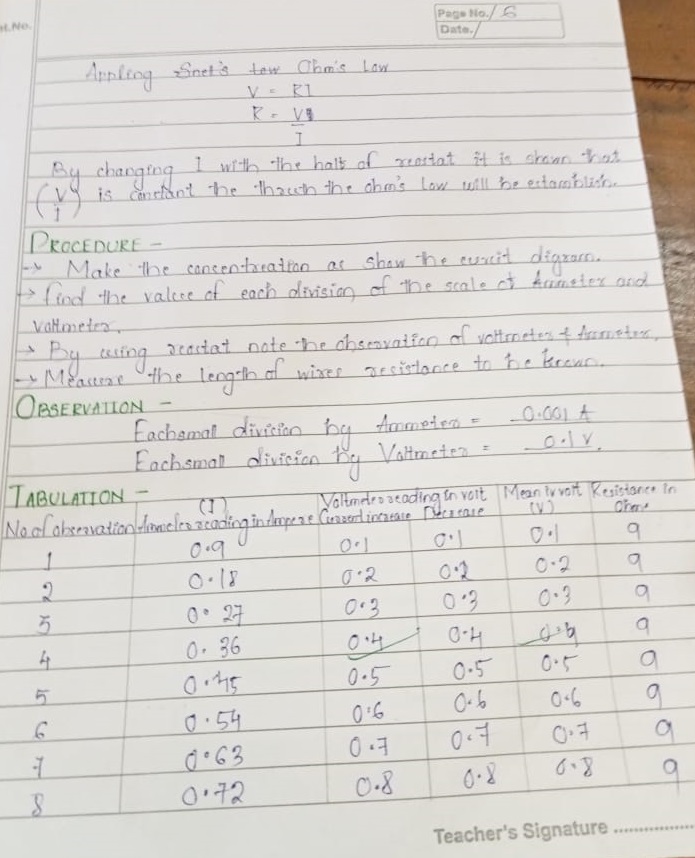 Page No./ 6
Date./
Appling Snel's law Ohm's Law
V = RI
R = V
I
By changing I with the halt of reostat it is shown that
(V/I) is constant the the ohm's law will be establish.
PROCEDURE -
→ Make the concentreation as show the digram.
→ find the value of each division of the scale of Ammeter and
voltmeter.
→ By using reostat note the observation of voltmeter & Ammeter.
→ Measure the length of wires resistance to be known.
OBSERVATION -
Eachsmall division by Ammeter = 0.001 A
Eachsmall division by Voltmeter = 0.1 V.
TABULATION -
No of observation (I) Ammeter reading in Ampere Voltmeter reading in volt Current increase Decrease Mean Iv volt (V) Resistance In Ohm's
1 0.9 0.1 0.1 0.1 9
2 0.18 0.2 0.2 0.2 9
3 0.27 0.3 0.3 0.3 9
4 0.36 0.4 0.4 0.4 9
5 0.45 0.5 0.5 0.5 9
6 0.54 0.6 0.6 0.6 9
7 0.63 0.7 0.7 0.7 9
8 0.72 0.8 0.8 0.8 9
Teacher's Signature ................